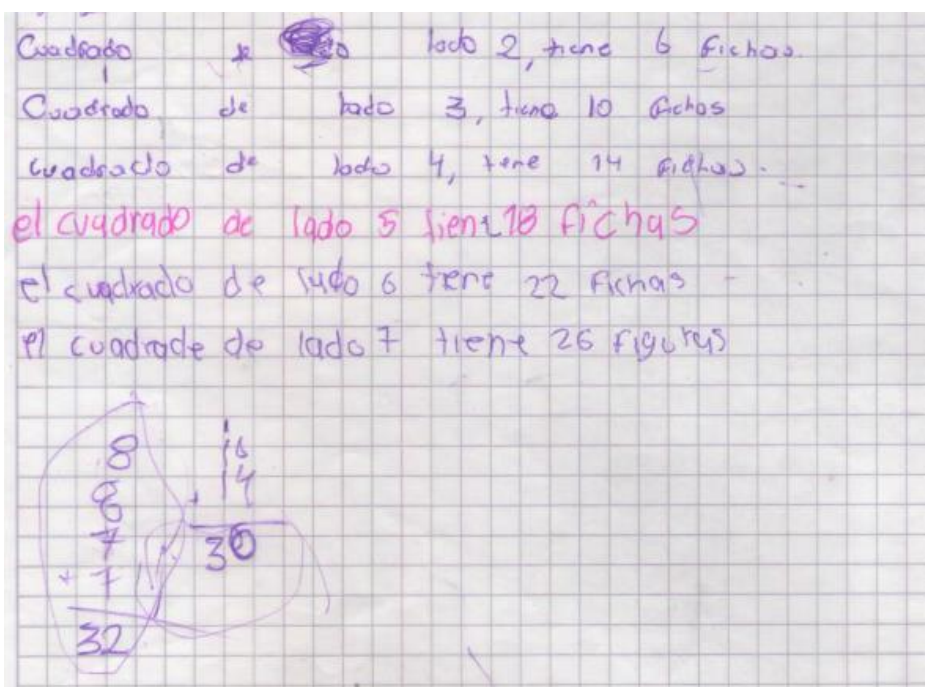 Cuadrado de lado 2, tiene 6 fichas.
Cuadrado de lado 3, tiene 10 fichas
cuadrado de lado 4, tene 14 fichas.
el cuadrado de lado 5 tiene 18 fichas
el cuadrado de lado 6 tene 22 fichas
el cuadrade de lado 7 tiene 26 figuras
8
8
7
+ 7
32
1
16
+ 14
30